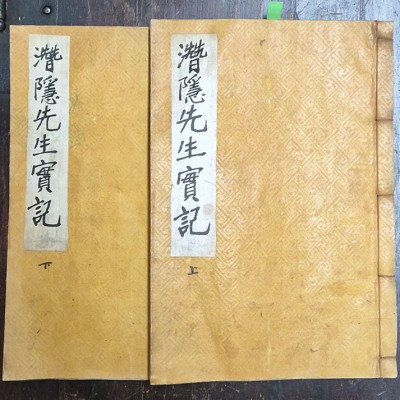 潛隱先生實記
上
潛隱先生實記
下